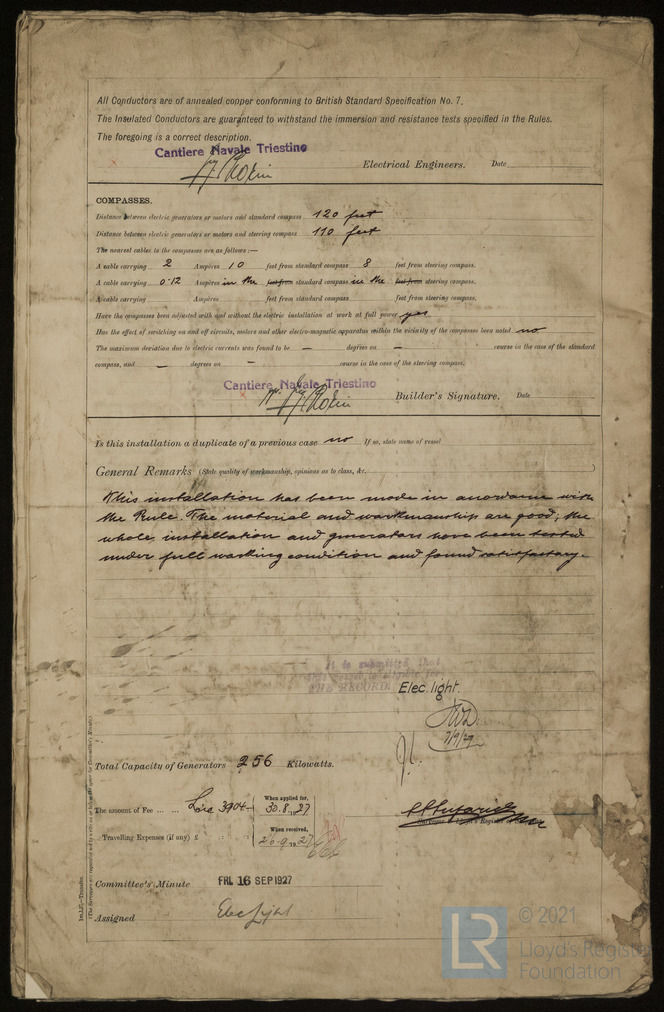 All Conductors are of annealed copper conforming to British Standard Specification No. 7.
The Insulated Conductors are guaranteed to withstand the immersion and resistance tests specified in the Rules.
The foregoing is a correct description.
Cantiere Navale Triestino
Electrical Engineers. Date
COMPASSES.
Distance between electric generators or motors and standard compass 120 feet
Distance between electric generators or motors and steering compass 110 feet
The nearest cables to the compasses are as follows:—
A cable carrying 2 Ampères 10 feet from standard compass 8 feet from steering compass.
A cable carrying 0.12 Ampères in the feet from standard compass in the feet from steering compass.
A cable carrying Ampères feet from standard compass feet from steering compass.
Have the compasses been adjusted with and without the electric installation at work at full power yes
Has the effect of switching on and off circuits, motors and other electro-magnetic apparatus within the vicinity of the compasses been noted no
The maximum deviation due to electric currents was found to be — degrees on — course in the case of the standard
compass, and — degrees on — course in the case of the steering compass.
Cantiere Navale Triestino
Builder's Signature. Date
Is this installation a duplicate of a previous case no If so, state name of vessel
General Remarks (State quality of workmanship, opinions as to class, &c.)
This installation has been made in accordance with
the Rule. The material and workmanship are good; the
whole installation and generators have been tested
under full working condition and found satisfactory.
It is submitted that
this vessel is eligible for
THE RECORD. Elec. light.
7/9/27
Total Capacity of Generators 256 Kilowatts.
The amount of Fee Lire 3904 When applied for, 30.8.1927
Travelling Expenses (if any) £ When received, 26.9.1927
Committee's Minute FRI. 16 SEP 1927
Assigned Elec Light
© 2021
Lloyd's Register
Foundation
LR